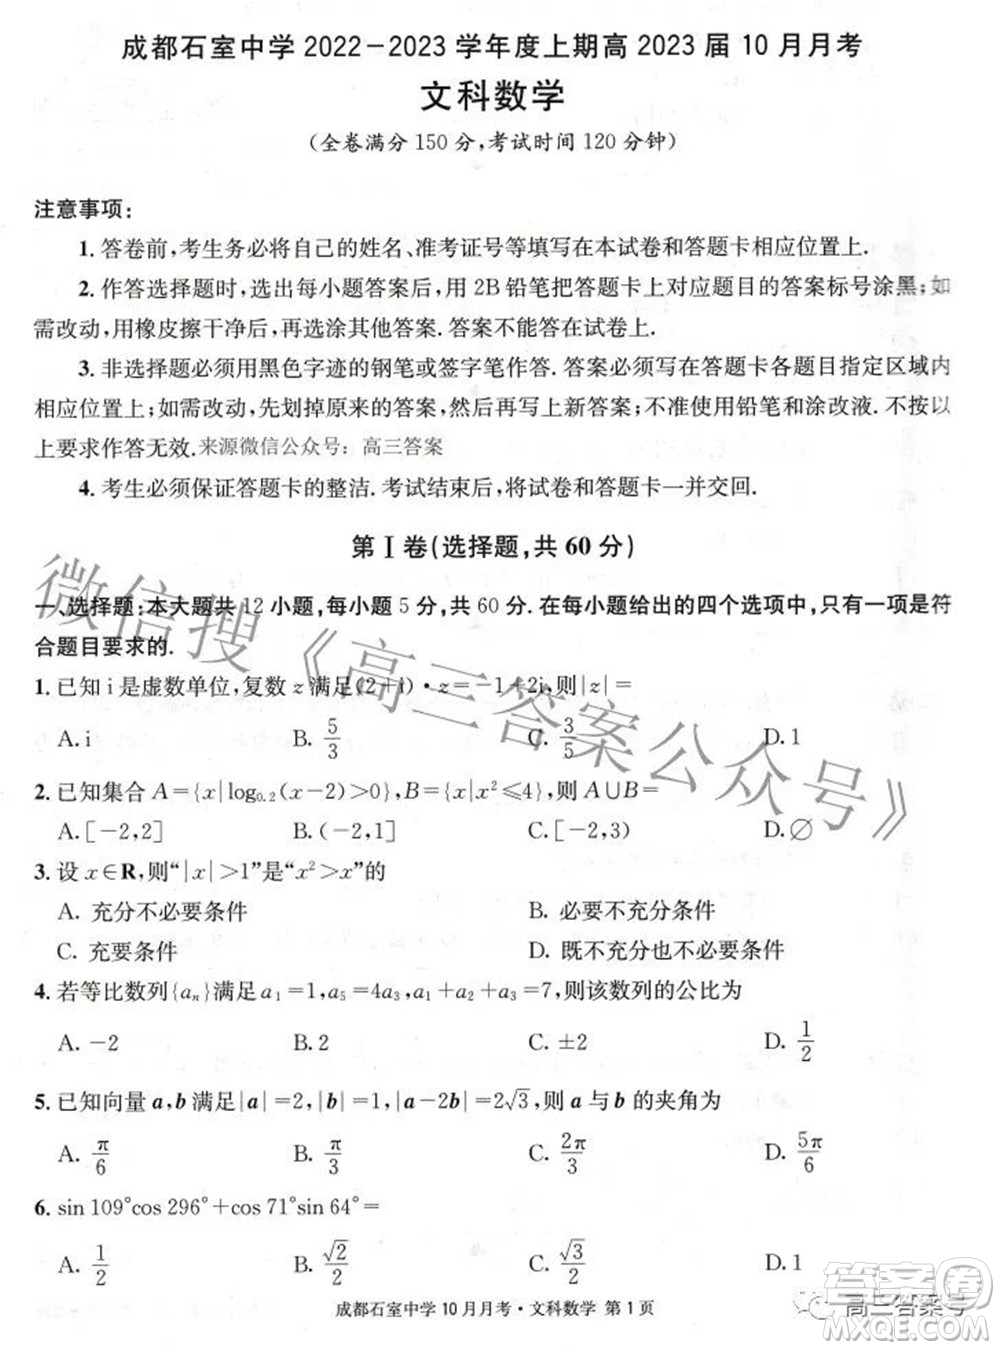 成都石室中学 2022－2023 学年度上期高 2023 届 10 月月考
文科数学
(全卷满分 150 分,考试时间 120 分钟)
注意事项:
1. 答卷前,考生务必将自己的姓名、准考证号等填写在本试卷和答题卡相应位置上.
2. 作答选择题时,选出每小题答案后,用 2B 铅笔把答题卡上对应题目的答案标号涂黑;如
需改动,用橡皮擦干净后,再选涂其他答案. 答案不能答在试卷上.
3. 非选择题必须用黑色字迹的钢笔或签字笔作答. 答案必须写在答题卡各题目指定区域内
相应位置上;如需改动,先划掉原来的答案,然后再写上新答案;不准使用铅笔和涂改液. 不按以
上要求作答无效. 来源微信公众号：高三答案
4. 考生必须保证答题卡的整洁. 考试结束后,将试卷和答题卡一并交回.
第 Ⅰ 卷(选择题,共 60 分)
一、选择题:本大题共 12 小题,每小题 5 分,共 60 分. 在每小题给出的四个选项中,只有一项是符
合题目要求的.
1. 已知 i 是虚数单位,复数 z 满足(2+i)·z=-1+2i,则|z|=
A. i B. 5/3 C. 3/5 D. 1
2. 已知集合 A={x|log₀.₂(x-2)>0},B={x|x²≤4},则 A∪B=
A. [-2,2] B. (-2,1] C. [-2,3) D. ∅
3. 设 x∈R,则“|x|>1”是“x²>x”的
A. 充分不必要条件 B. 必要不充分条件
C. 充要条件 D. 既不充分也不必要条件
4. 若等比数列{aₙ}满足 a₁=1,a₅=4a₃,a₁+a₂+a₃=7,则该数列的公比为
A. -2 B. 2 C. ±2 D. 1/2
5. 已知向量 a,b 满足|a|=2,|b|=1,|a-2b|=2√3,则 a 与 b 的夹角为
A. π/6 B. π/3 C. 2π/3 D. 5π/6
6. sin 109°cos 296°+cos 71°sin 64°=
A. 1/2 B. √2/2 C. √3/2 D. 1
成都石室中学 10 月月考·文科数学 第 1 页
微信搜《高三答案公众号》
高三答案号
答案圈
MXQE.COM